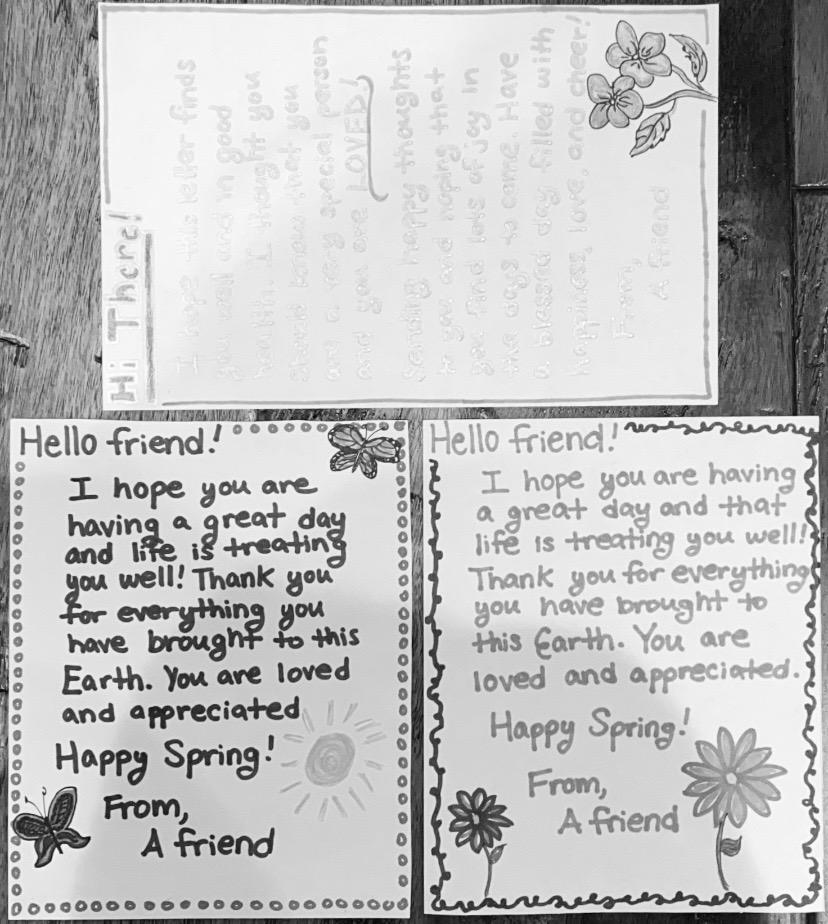 Hi There!
I hope this letter finds
you well and in good
health. I thought you
should know that you
are a very special person
and you are LOVED!
Sending happy thoughts
to you and hoping that
you find lots of joy in
the days to come. Have
a blessed day filled with
happiness, love, and cheer!
From,
A friend
Hello friend!
I hope you are
having a great day
and life is treating
you well! Thank you
for everything you
have brought to this
Earth. You are loved
and appreciated
Happy Spring!
From,
A friend
Hello friend!
I hope you are having
a great day and that
life is treating you well!
Thank you for everything
you have brought to
this Earth. You are
loved and appreciated.
Happy Spring!
From,
A friend